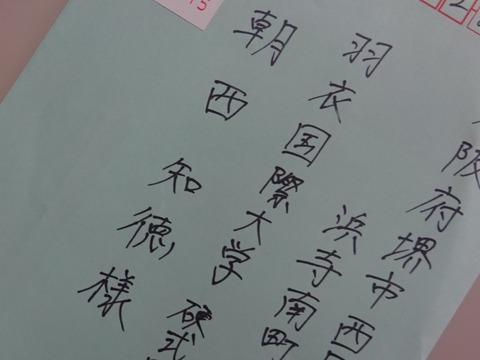 阪府堺市西
浜寺南町
羽衣国際大学
硬式
朝西知徳様
15
2